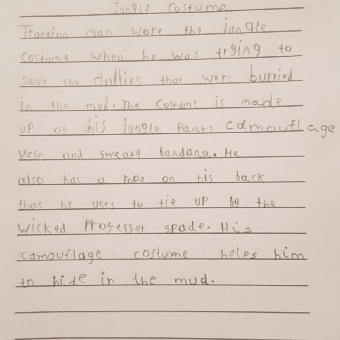 Jungle Costume
Traction man wore the jungle
costume when he was trying to
save the dollies that were burried
in the mud. The costume is made
up of his jungle pants camouflage
vest and sweaty bandana. He
also has a rope on his back
that he uses to tie up by the
wicked Professor spade. His
camouflage costume helps him
to hide in the mud.